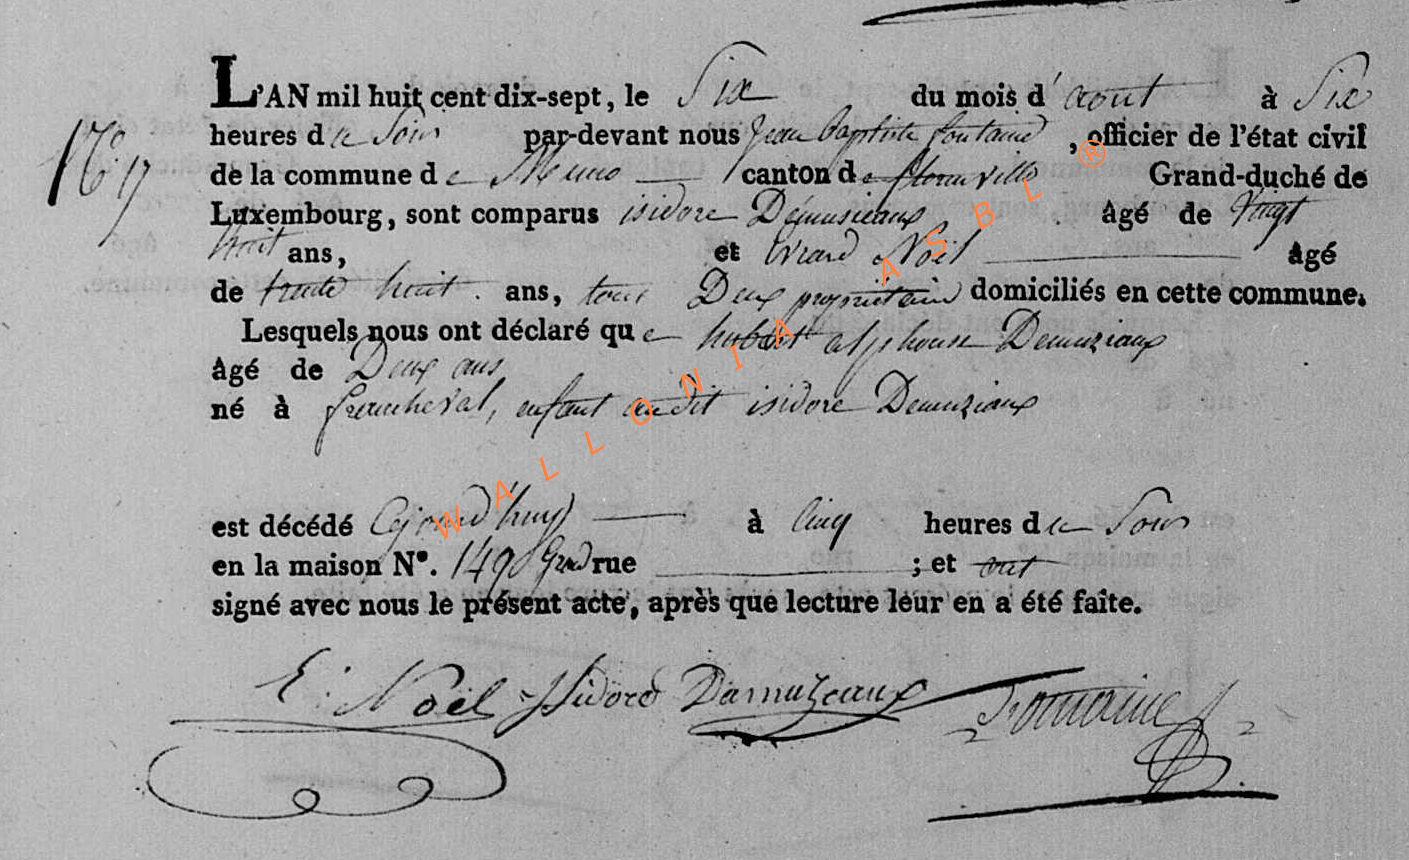 L'AN mil huit cent dix-sept, le Six du mois d' aout à Six
heures du Soir par-devant nous Jean Baptiste fontaine, officier de l'état civil
N° 17 de la commune de Muno canton de florenville Grand-duché de
Luxembourg, sont comparus isidore Demusieaux âgé de Vingt
huit ans, et Evrard Noël âgé
de trente huit ans, tous Deux propriétaire domiciliés en cette commune.
Lesquels nous ont déclaré que hubert alphonse Demuziaux
âgé de Deux ans
né à francheval, enfant audit isidore Demuziaux
est décédé Cejourd'huy à Cinq heures du Soir
en la maison N°. 149 Grand rue ; et ont
signé avec nous le présent acte, après que lecture leur en a été faite.
E. Noël Isidore Damuzeaux Fontaine
WALLONIA ASBL ®